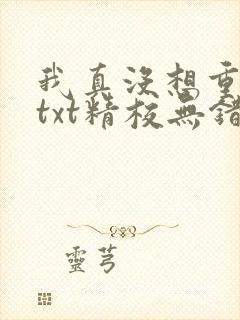 我真沒想重
txt精校無錯
靈芎